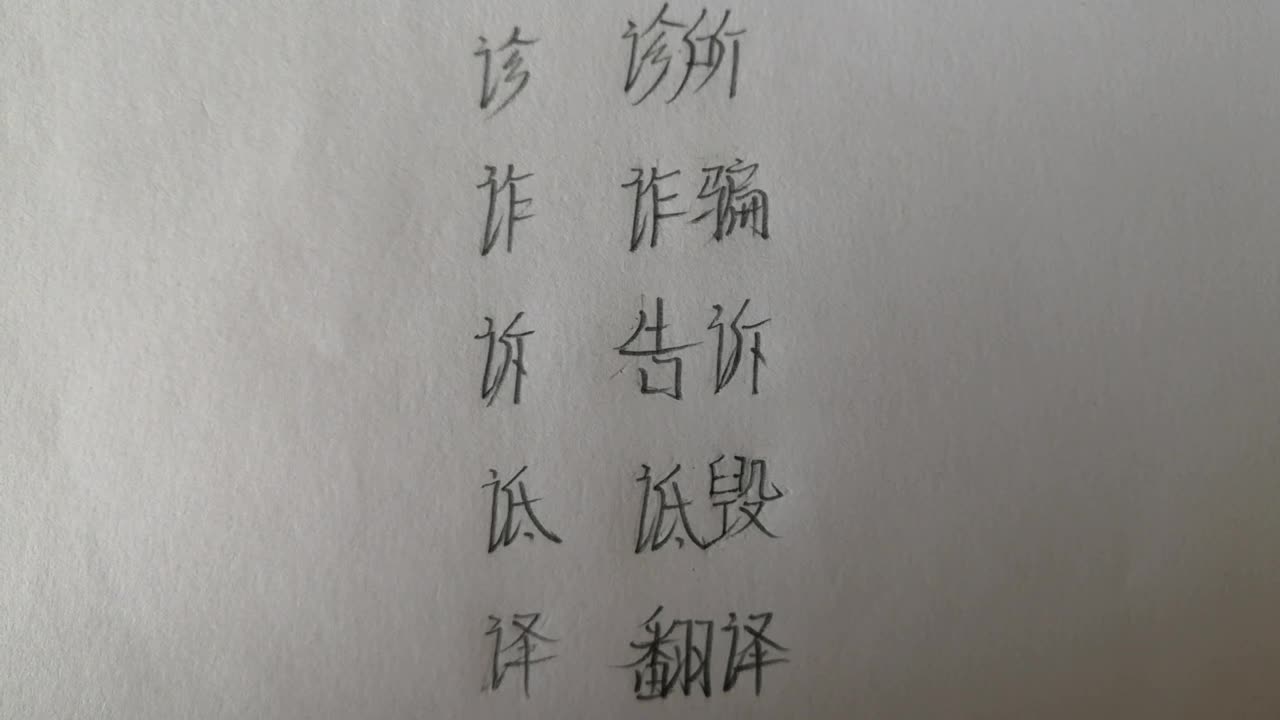 诊 诊所
诈 诈骗
诉 告诉
诋 诋毁
译 翻译